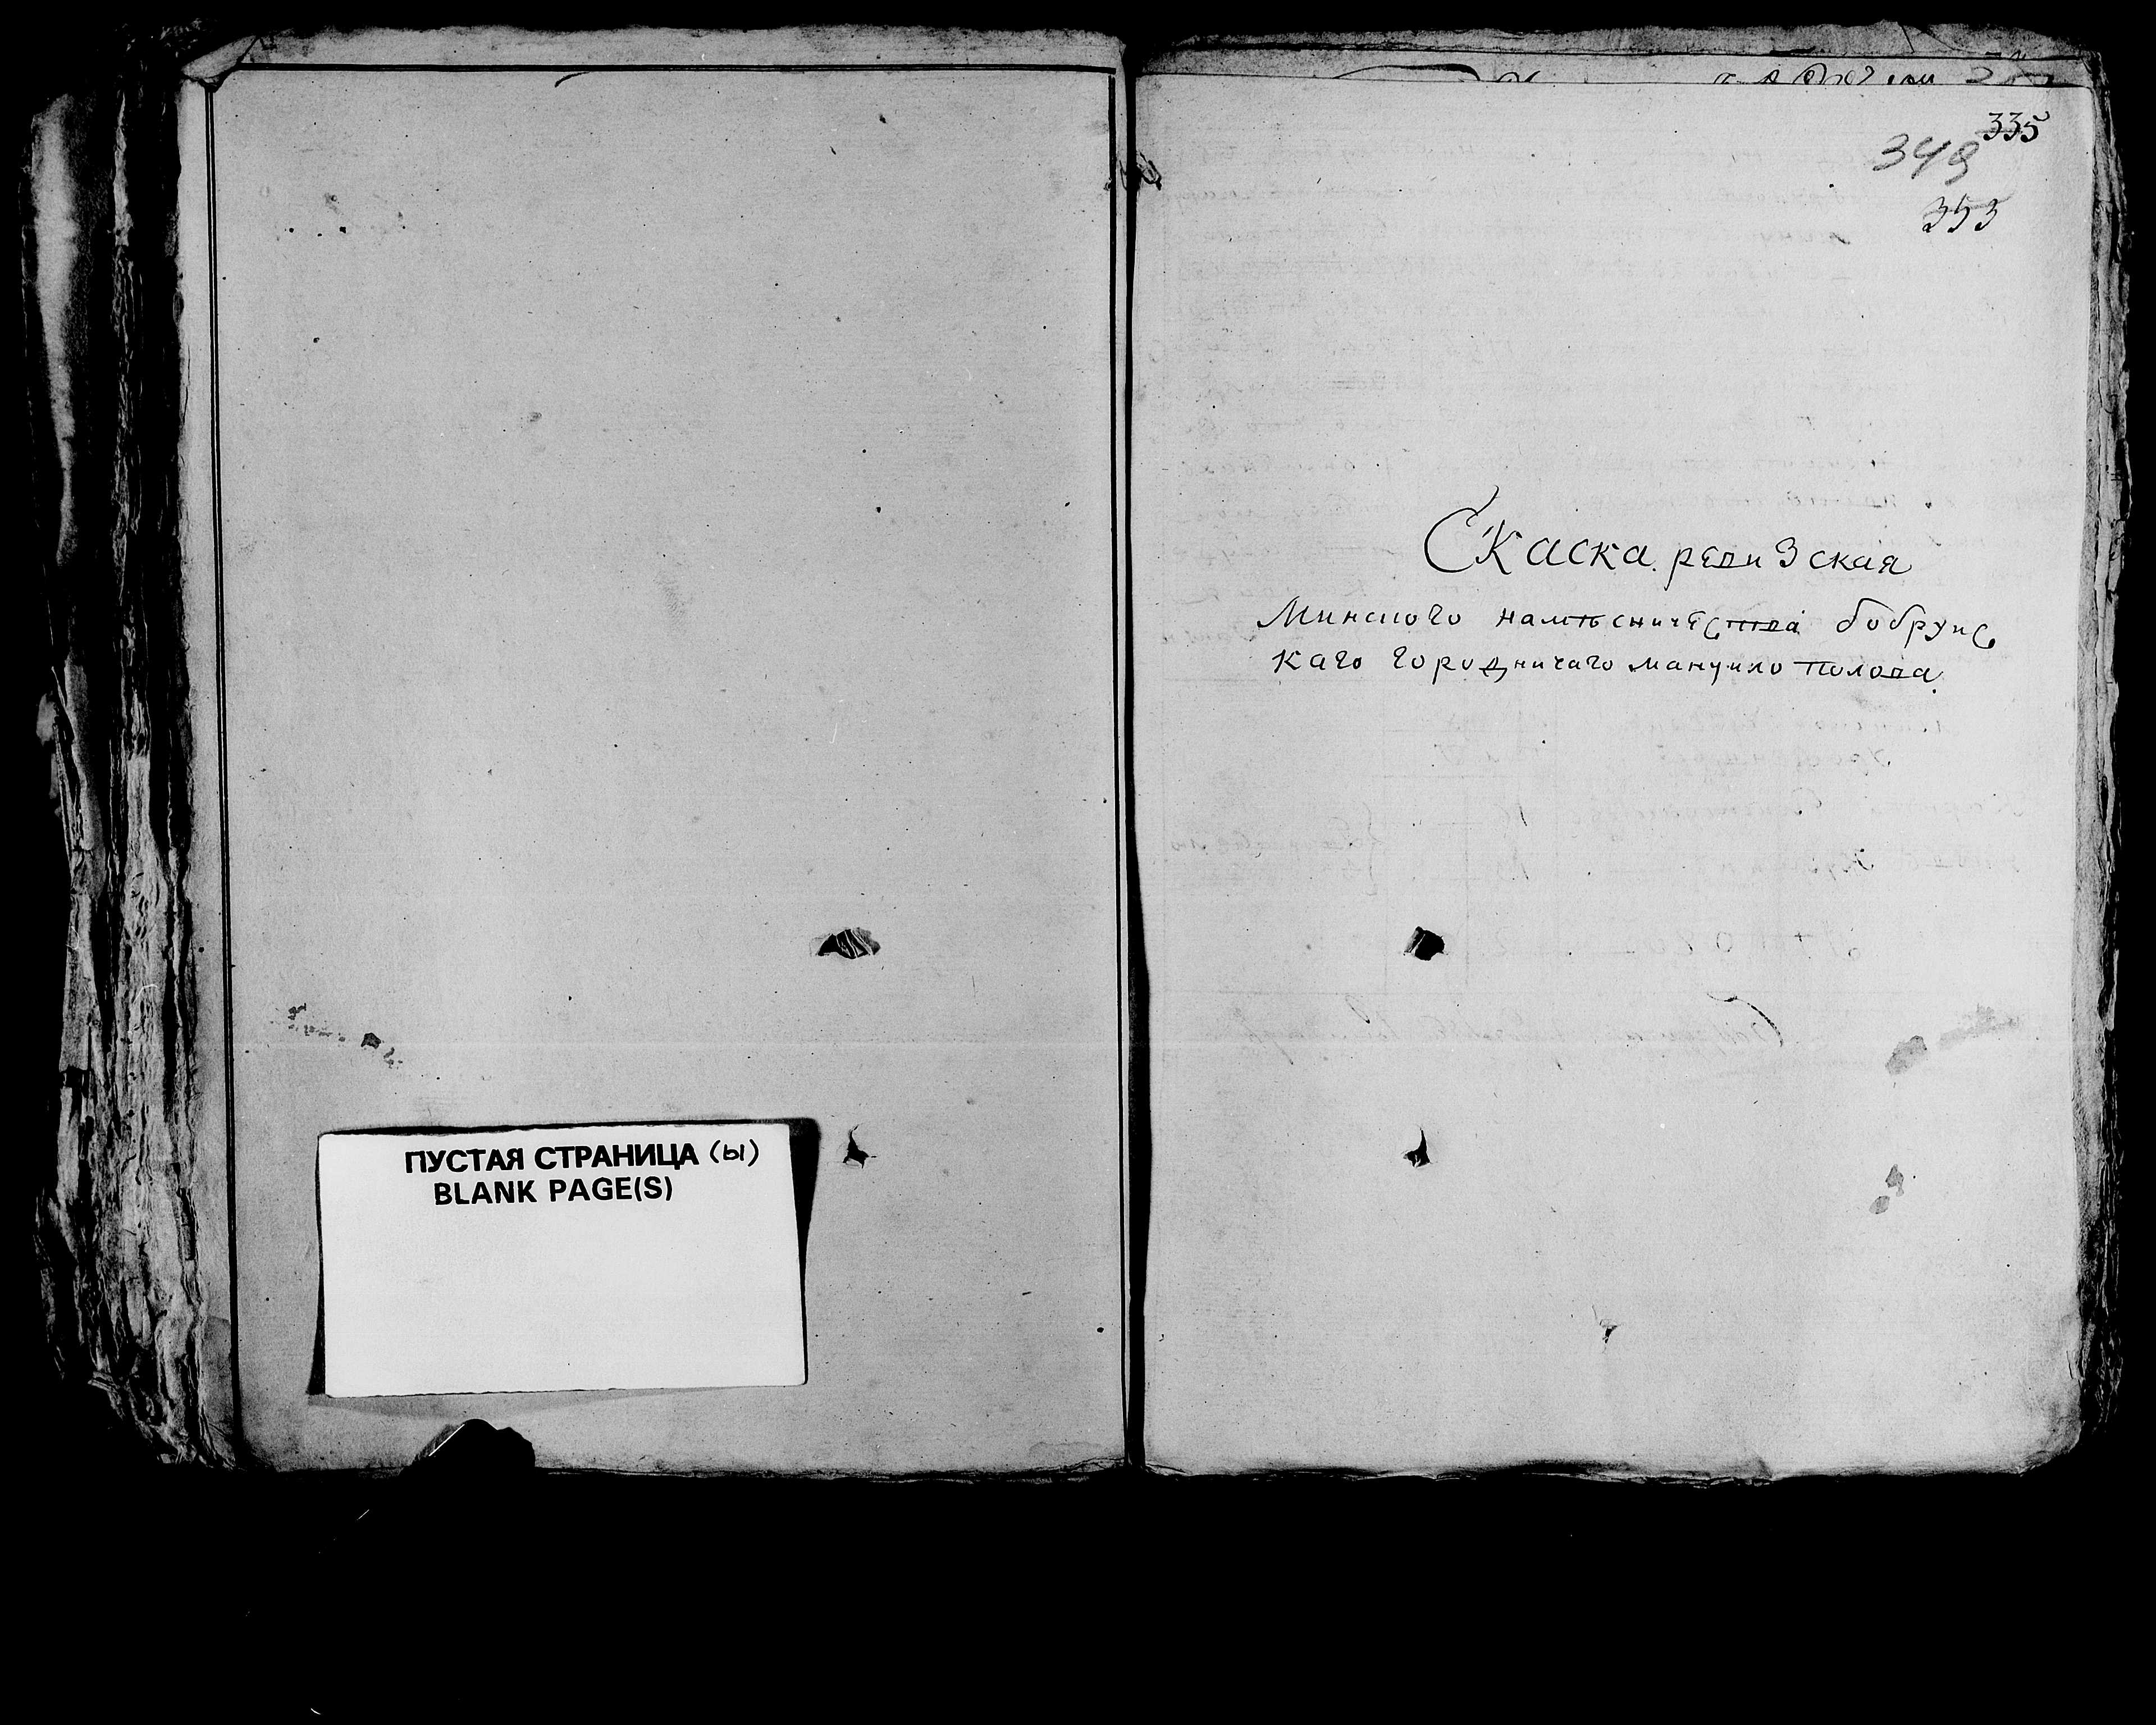 ПУСТАЯ СТРАНИЦА (ы)
BLANK PAGE(S)
335
349
353
Скаска ревизская
Минского намѣсничества бобруис
каго городничаго мануило полова